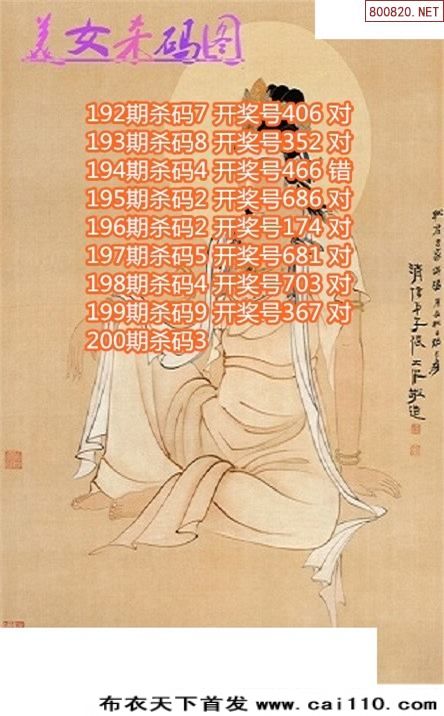 800820.NET
美女杀码图
192期杀码7 开奖号406 对
193期杀码8 开奖号352 对
194期杀码4 开奖号466 错
195期杀码2 开奖号686 对
196期杀码2 开奖号174 对
197期杀码5 开奖号681 对
198期杀码4 开奖号703 对
199期杀码9 开奖号367 对
200期杀码3
布衣天下首发 www.cai110.com